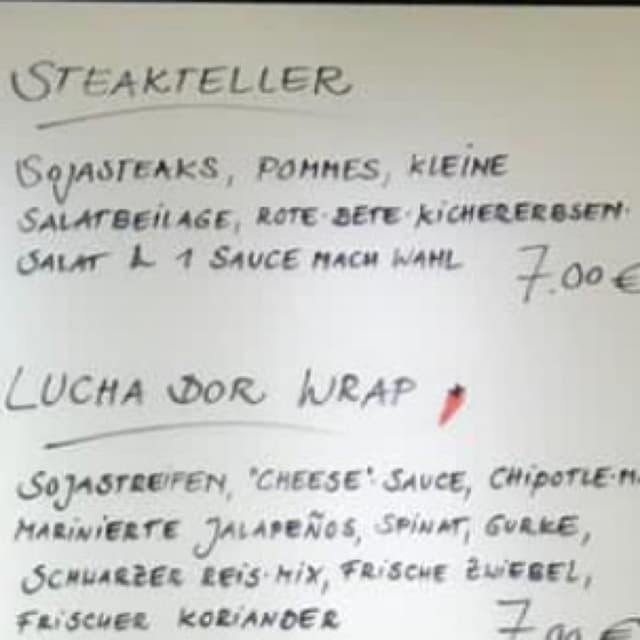 STEAKTELLER
SOJASTEAKS, POMMES, KLEINE
SALATBEILAGE, ROTE-BETE-KICHERERBSEN-
SALAT & 1 SAUCE NACH WAHL 7.00 €
LUCHA DOR WRAP
SOJASTREIFEN, "CHEESE"-SAUCE, CHIPOTLE-M
MARINIERTE JALAPEÑOS, SPINAT, GURKE,
SCHWARZER REIS-MIX, FRISCHE ZWIEBEL,
FRISCHER KORIANDER 7.00 €